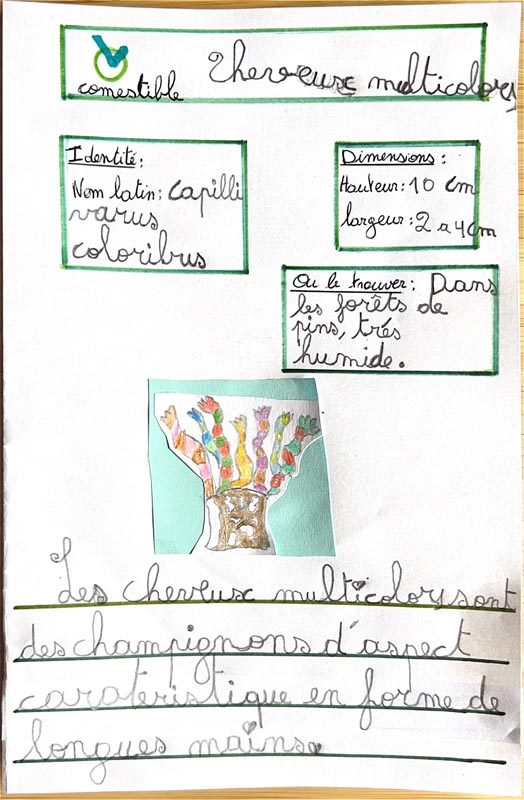 comestible
Cheveux multicolors
Identité:
Nom latin: capilli
varus
coloribus
Dimensions:
Hauteur: 10 cm
largeur: 2 a 4cm
Ou le trouver: Dans
les forêts de
pins, trés
humide.
Les cheveux multicolors sont
des champignons d'aspect
caratèristique en forme de
longues mains.